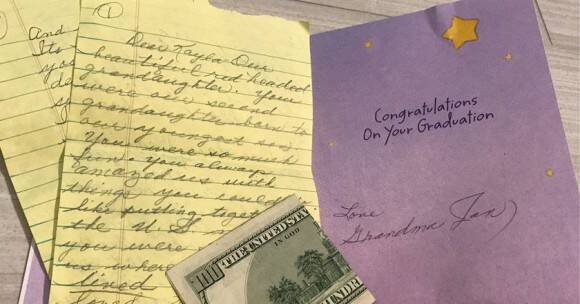 1
Dear Kayla Our
beautiful red headed
grandaughter. You
were our second
grandaughter born to
our youngest son.
You were so much
fun. you always
amazed us with
things you could
like putting toget
the U.S
you were
us where
lived
loved
And
Its
you
de
Congratulations
On Your Graduation
Love
Grandma Jan
THE UNITED STA
IN GOD
100
HUNDR